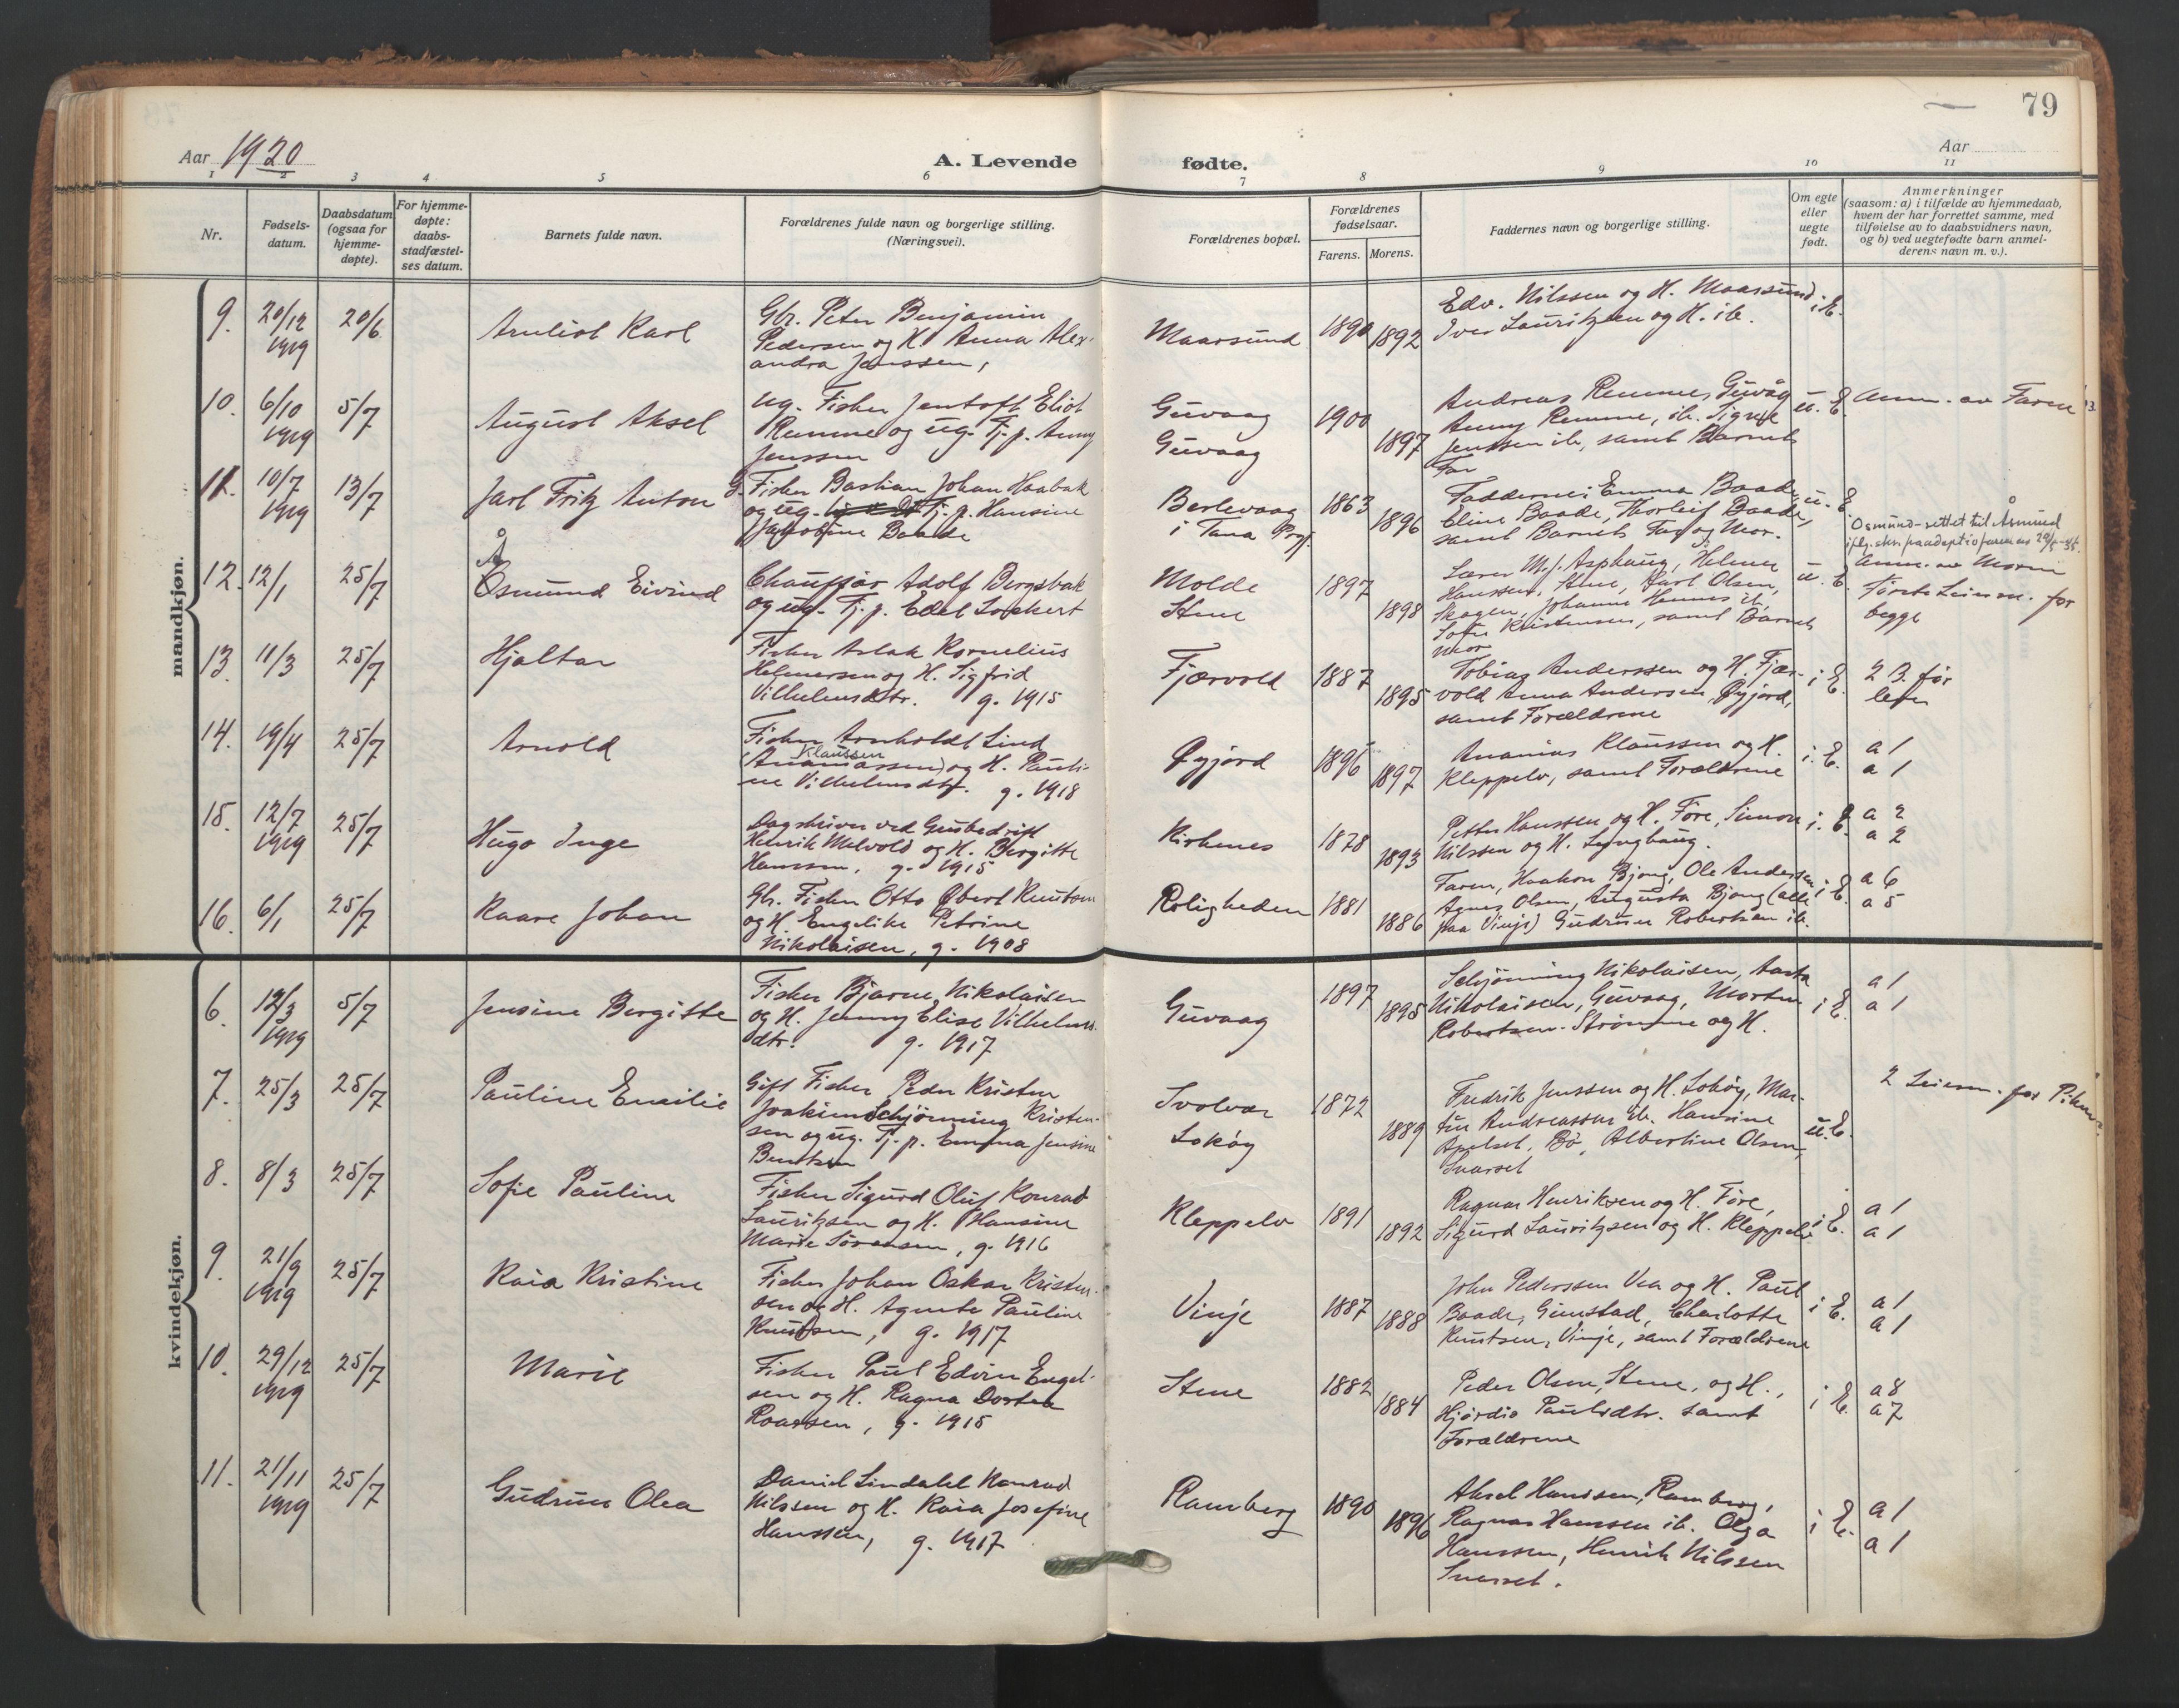 79
Aar 1920
A. Levende fødte.
Aar
1 2 3 4 5 6 7 8 9 10 11
Nr.
Fødsels-
datum.
Daabsdatum
(ogsaa for
hjemme-
døpte).
For hjemme-
døpte:
daabs-
stadfæstel-
ses datum.
Barnets fulde navn.
Forældrenes fulde navn og borgerlige stilling.
(Næringsvei).
Forældrenes bopæl.
Forældrenes
fødselsaar.
Farens. Morens.
Faddernes navn og borgerlige stilling.
Om egte
eller
uegte
født.
Anmerkninger
(saasom: a) i tilfælde av hjemmedaab,
hvem der har forrettet samme, med
tilføielse av to daabsvidners navn,
og b) ved uegtefødte barn anmel-
derens navn m. v.).
mandkjøn.
9. 20/12 1919 20/6
Arnliot Karl
Gbr. Peter Benjamin
Pedersen og H. Anna Alex-
andra Jenssen,
Maarsund
1890 1892
Edv. Nilssen og H. Maarsund
Iver Lauritzsen og H. ib.
i E.
10. 6/10 1919 5/7
August Aksel
ug. Fisker Jentoft Eliot
Remme og ug. Tj. p. Anny
Jenssen
Guvaag
Guvaag
1900 1897
Andreas Remme, Guvåg
Anny Remme, ib. Signe
Jenssen ib, samt Barnets
Far
u. E.
Anm. av Faren
11. 10/7 1919 13/7
Jarl Fritz Anton
G. Fisker Bastian Johan Haabak
og ug. Tj. p. Hansine
Jakobine Baade
Berlevaag
i Tana Prgj.
1863 1896
Fadderne: Emma Baade,
Eline Baade, Thorleif Baade,
samt Barnets Far og Mor.
u. E.
Osmund-rettet til Åsmund
12. 12/1 25/7
Å
Osmund Eivind
Chauffør Adolf Bergsbak
og ug. Tj. p. Edel Lockert
Molde
Stene
1897 1898
Lærer M. J. Asphaug, Helene
Hanssen, Stene, Karl Olsen,
Skagen, Johanne Hennes ib,
Sofie Kristensen, samt Barnets
Mor
u. E.
Anm. av Moren
Første Leierm. for
begge
13. 11/3 25/7
Hjaltar
Fisker Aslak Kornelius
Helmersen og H. Sigfrid
Vilhelmsdtr. g. 1915
Fjærvold
1887 1895
Tobias Anderssen og H. Fjær-
vold Anna Andersen, Øyjord,
samt Forældrene
i E.
2 B. før
lever
14. 19/4 25/7
Arnold
Fisker Arnholdt Lind
Klaussen
(Ananiassen) og H. Pauli-
ne Vilhelmsdtr. g. 1918
Øyjord
1896 1897
Ananias Klaussen og H.
Kleppelv, samt Forældrene
i. E.
a 1
a 1
15. 12/7 1919 25/7
Hugo Inge
Dagskriver ved Grubedrift
Henrik Melvold og H. Bergitte
Hanssen, g. 1915
Kirkenes
1878 1893
Petter Hanssen og H. Føre, Simon
Nilssen og H. Lynghaug.
i. E.
a 2
a 2
16. 6/1 25/7
Kaare Johan
Gbr. Fisker Otto Øbert Knutsen
og H. Engelike Petrine
Nikolaisen, g. 1908
Roligheden
1881 1886
Faren, Haakon Bjong, Ole Andersen
Agnes Olsen, Augusta Bjong (alle
paa Vinje) Gudrun Robertsen ib.
i E.
a 6
a 5
kvindekjøn.
6. 12/3 1919 5/7
Jensine Bergitte
Fisker Bjarne Nikolaisen
og H. Jenny Elise Vilhelms-
dtr. g. 1917
Guvaag
1897 1895
Schjønning Nikolaisen, Aasta
Nikolaisen, Guvaag, Morten
Robertsen-Strømme og H.
i E.
a 1
a 1
7. 25/3 25/7
Pauline Emilie
Gift Fisker Peder Kristen
Joakim Schjønning Kristen-
sen og ug. Tj. p. Emma Jensine
Bentsen
Svolvær
Lokøy
1872 1889
Fredrik Jenssen og H. Lokøy, Mar-
tin Andreassen ib. Hansine
Apelset, Bø, Albertine Olsen,
Svarset
u. E.
2 Leierm. for Piken
8. 8/3 25/7
Sofie Pauline
Fisker Sigurd Oluf Konrad
Lauritzsen og H. Hansine
Marie Sørensen, g. 1916
Kleppelv
1891 1892
Ragnar Henriksen og H. Føre,
Sigurd Lauritzsen og H. Kleppelv
i E.
a 1
a 1
9. 21/9 1919 25/7
Kaia Kristine
Fisker Johan Oskar Kristen-
sen og H. Agnete Pauline
Knudsen, g. 1917
Vinje
1887 1888
John Pederssen Vea og H. Paul
Baade, Guustad, Charlotte
Knutsen, Vinje, samt Forældrene
i E.
a 1
a 1
10. 29/12 1919 25/7
Marie
Fisker Paul Edvin Engel-
sen og H. Ragna Dortea
Roarsen, g. 1915
Stene
1882 1884
Peder Olsen, Stene, og H.,
Hjørdis Paulsdtr. samt
Forældrene
i E.
a 8
a 7
11. 21/11 1919 25/7
Gudrun Olea
Daniel Lindahl Konrad
Nilssen og H. Kaia Josefine
Hanssen, g. 1917
Ramberg
1890 1896
Aksel Hanssen, Ramberg,
Ragnar Hanssen ib. Olga
Hanssen, Henrik Nilssen
Svarset.
i E.
a 1
a 1